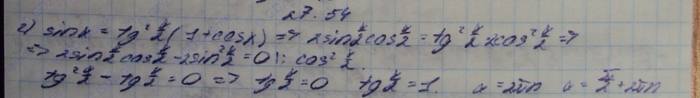 27.54
2) sin x = tg² x/2 (1 + cos x) => 2 sin x/2 cos x/2 = tg² x/2 2cos² x/2 =>
=> 2 sin x/2 cos x/2 - 2 sin² x/2 = 0 |: cos² x/2
tg² x/2 - tg x/2 = 0 => tg x/2 = 0 tg x/2 = 1. x = 2πn x = π/2 + 2πn